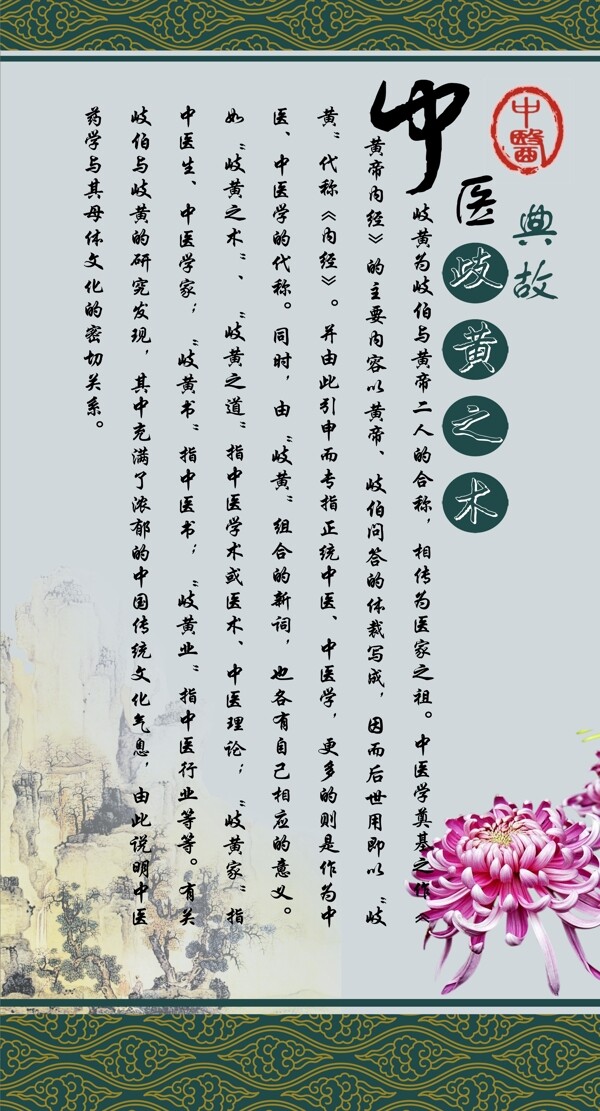 中醫
典故
中医
歧黄之术
歧黄为歧伯与黄帝二人的合称，相传为医家之祖。中医学奠基之作《
黄帝内经》的主要内容以黄帝、歧伯问答的体裁写成，因而后世用即以“歧
黄”代称《内经》。并由此引申而专指正统中医、中医学，更多的则是作为中
医、中医学的代称。同时，由“歧黄”组合的新词，也各有自己相应的意义。
如“歧黄之术”、“歧黄之道”指中医学术或医术、中医理论；“歧黄家”指
中医生、中医学家；“歧黄书”指中医书；“歧黄业”指中医行业等等。有关
歧伯与歧黄的研究发现，其中充满了浓郁的中国传统文化气息，由此说明中医
药学与其母体文化的密切关系。